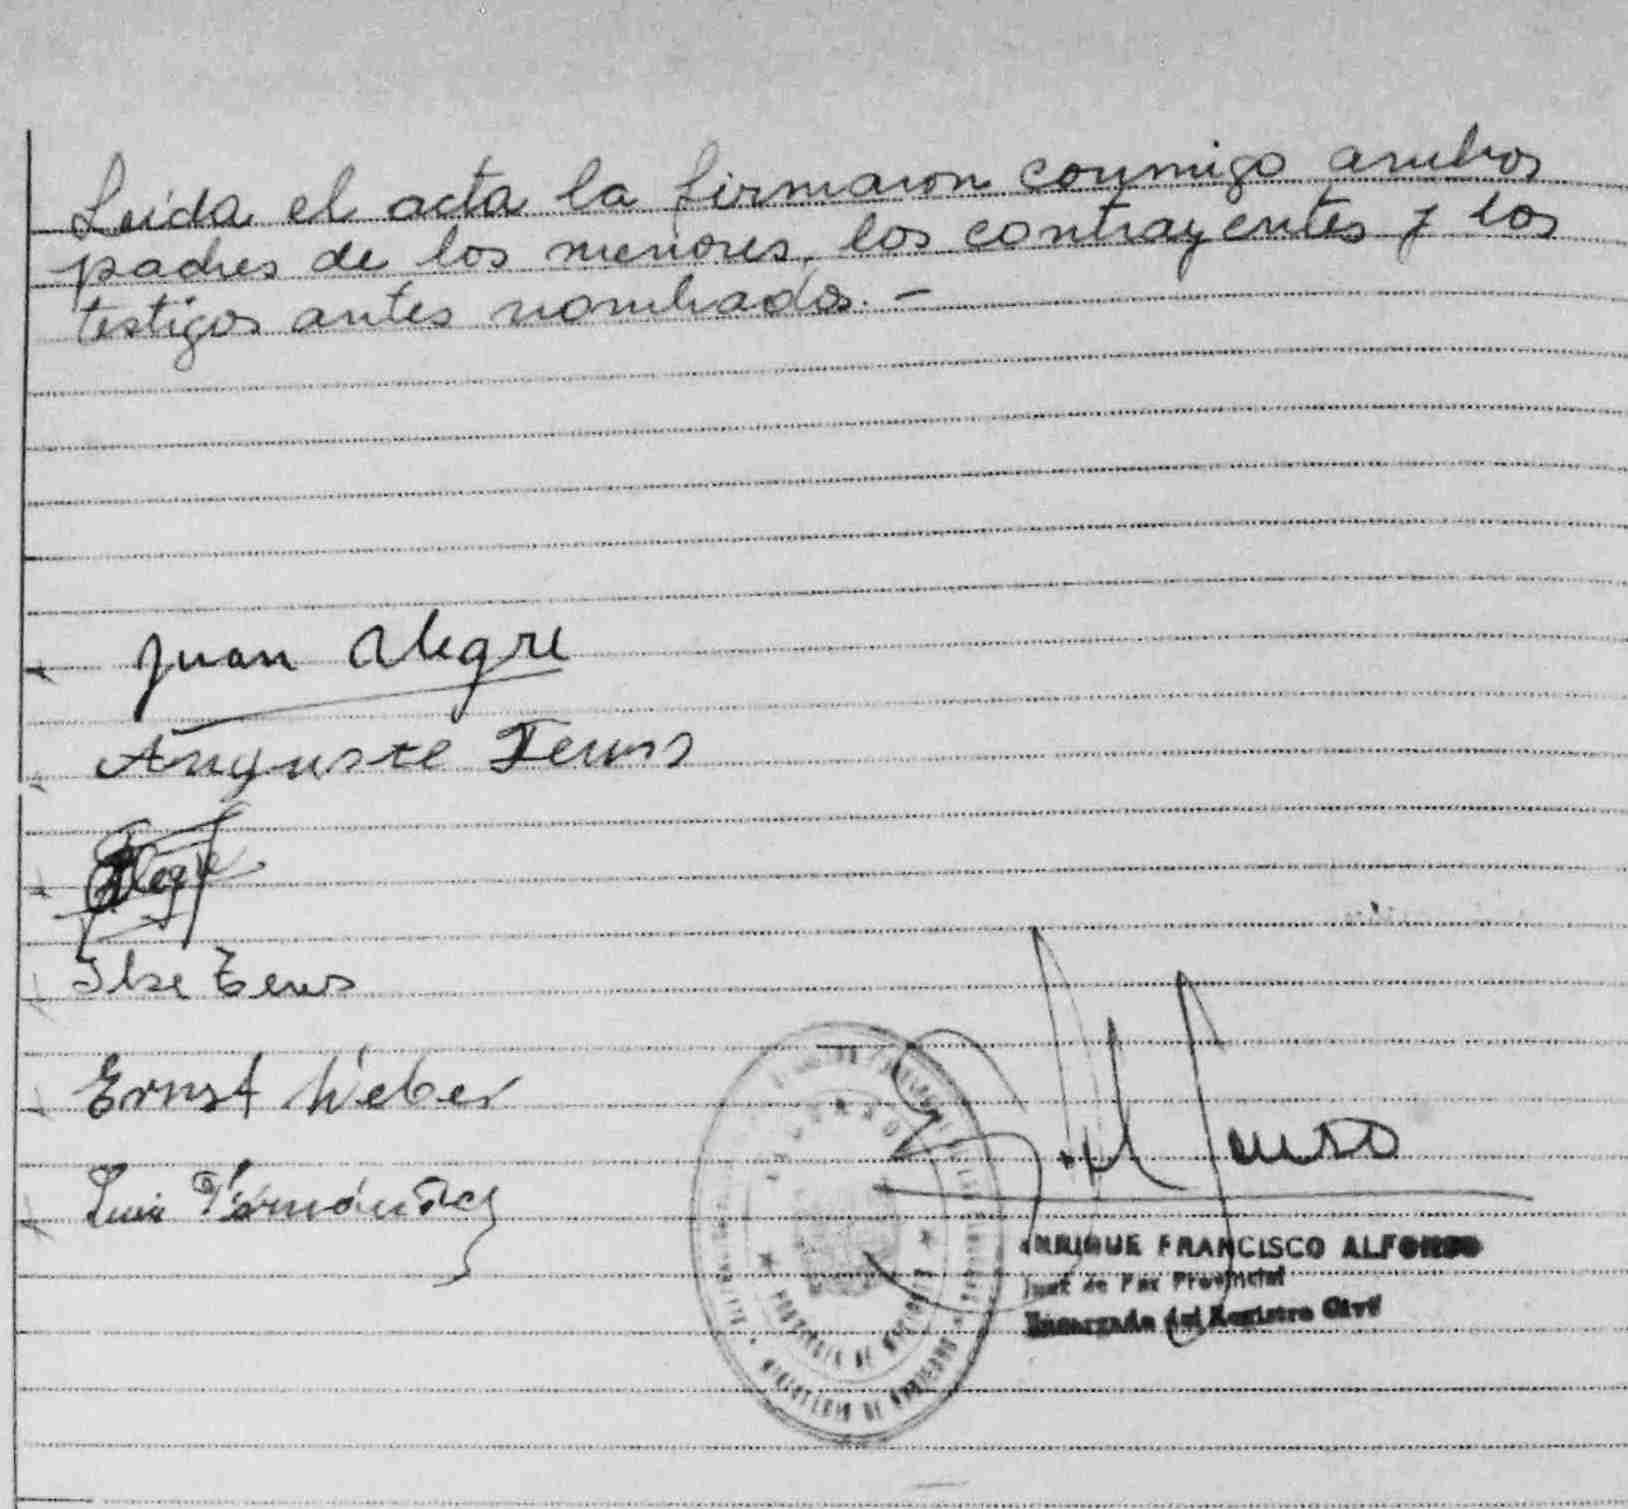 Leida el acta la firmaron conmigo ambos
padres de los menores, los contrayentes y los
testigos antes nombrados. -
Juan Alegre
Auguste Teuss
Alegre
Ilse Teus
Ernst Weber
Luis Fernández
E. F. Alfonso
ENRIQUE FRANCISCO ALFONSO
Juez de Paz Provincial
Encargado del Registro Civil
PROVINCIA DE MISIONES
MINISTERIO DE GOBIERNO